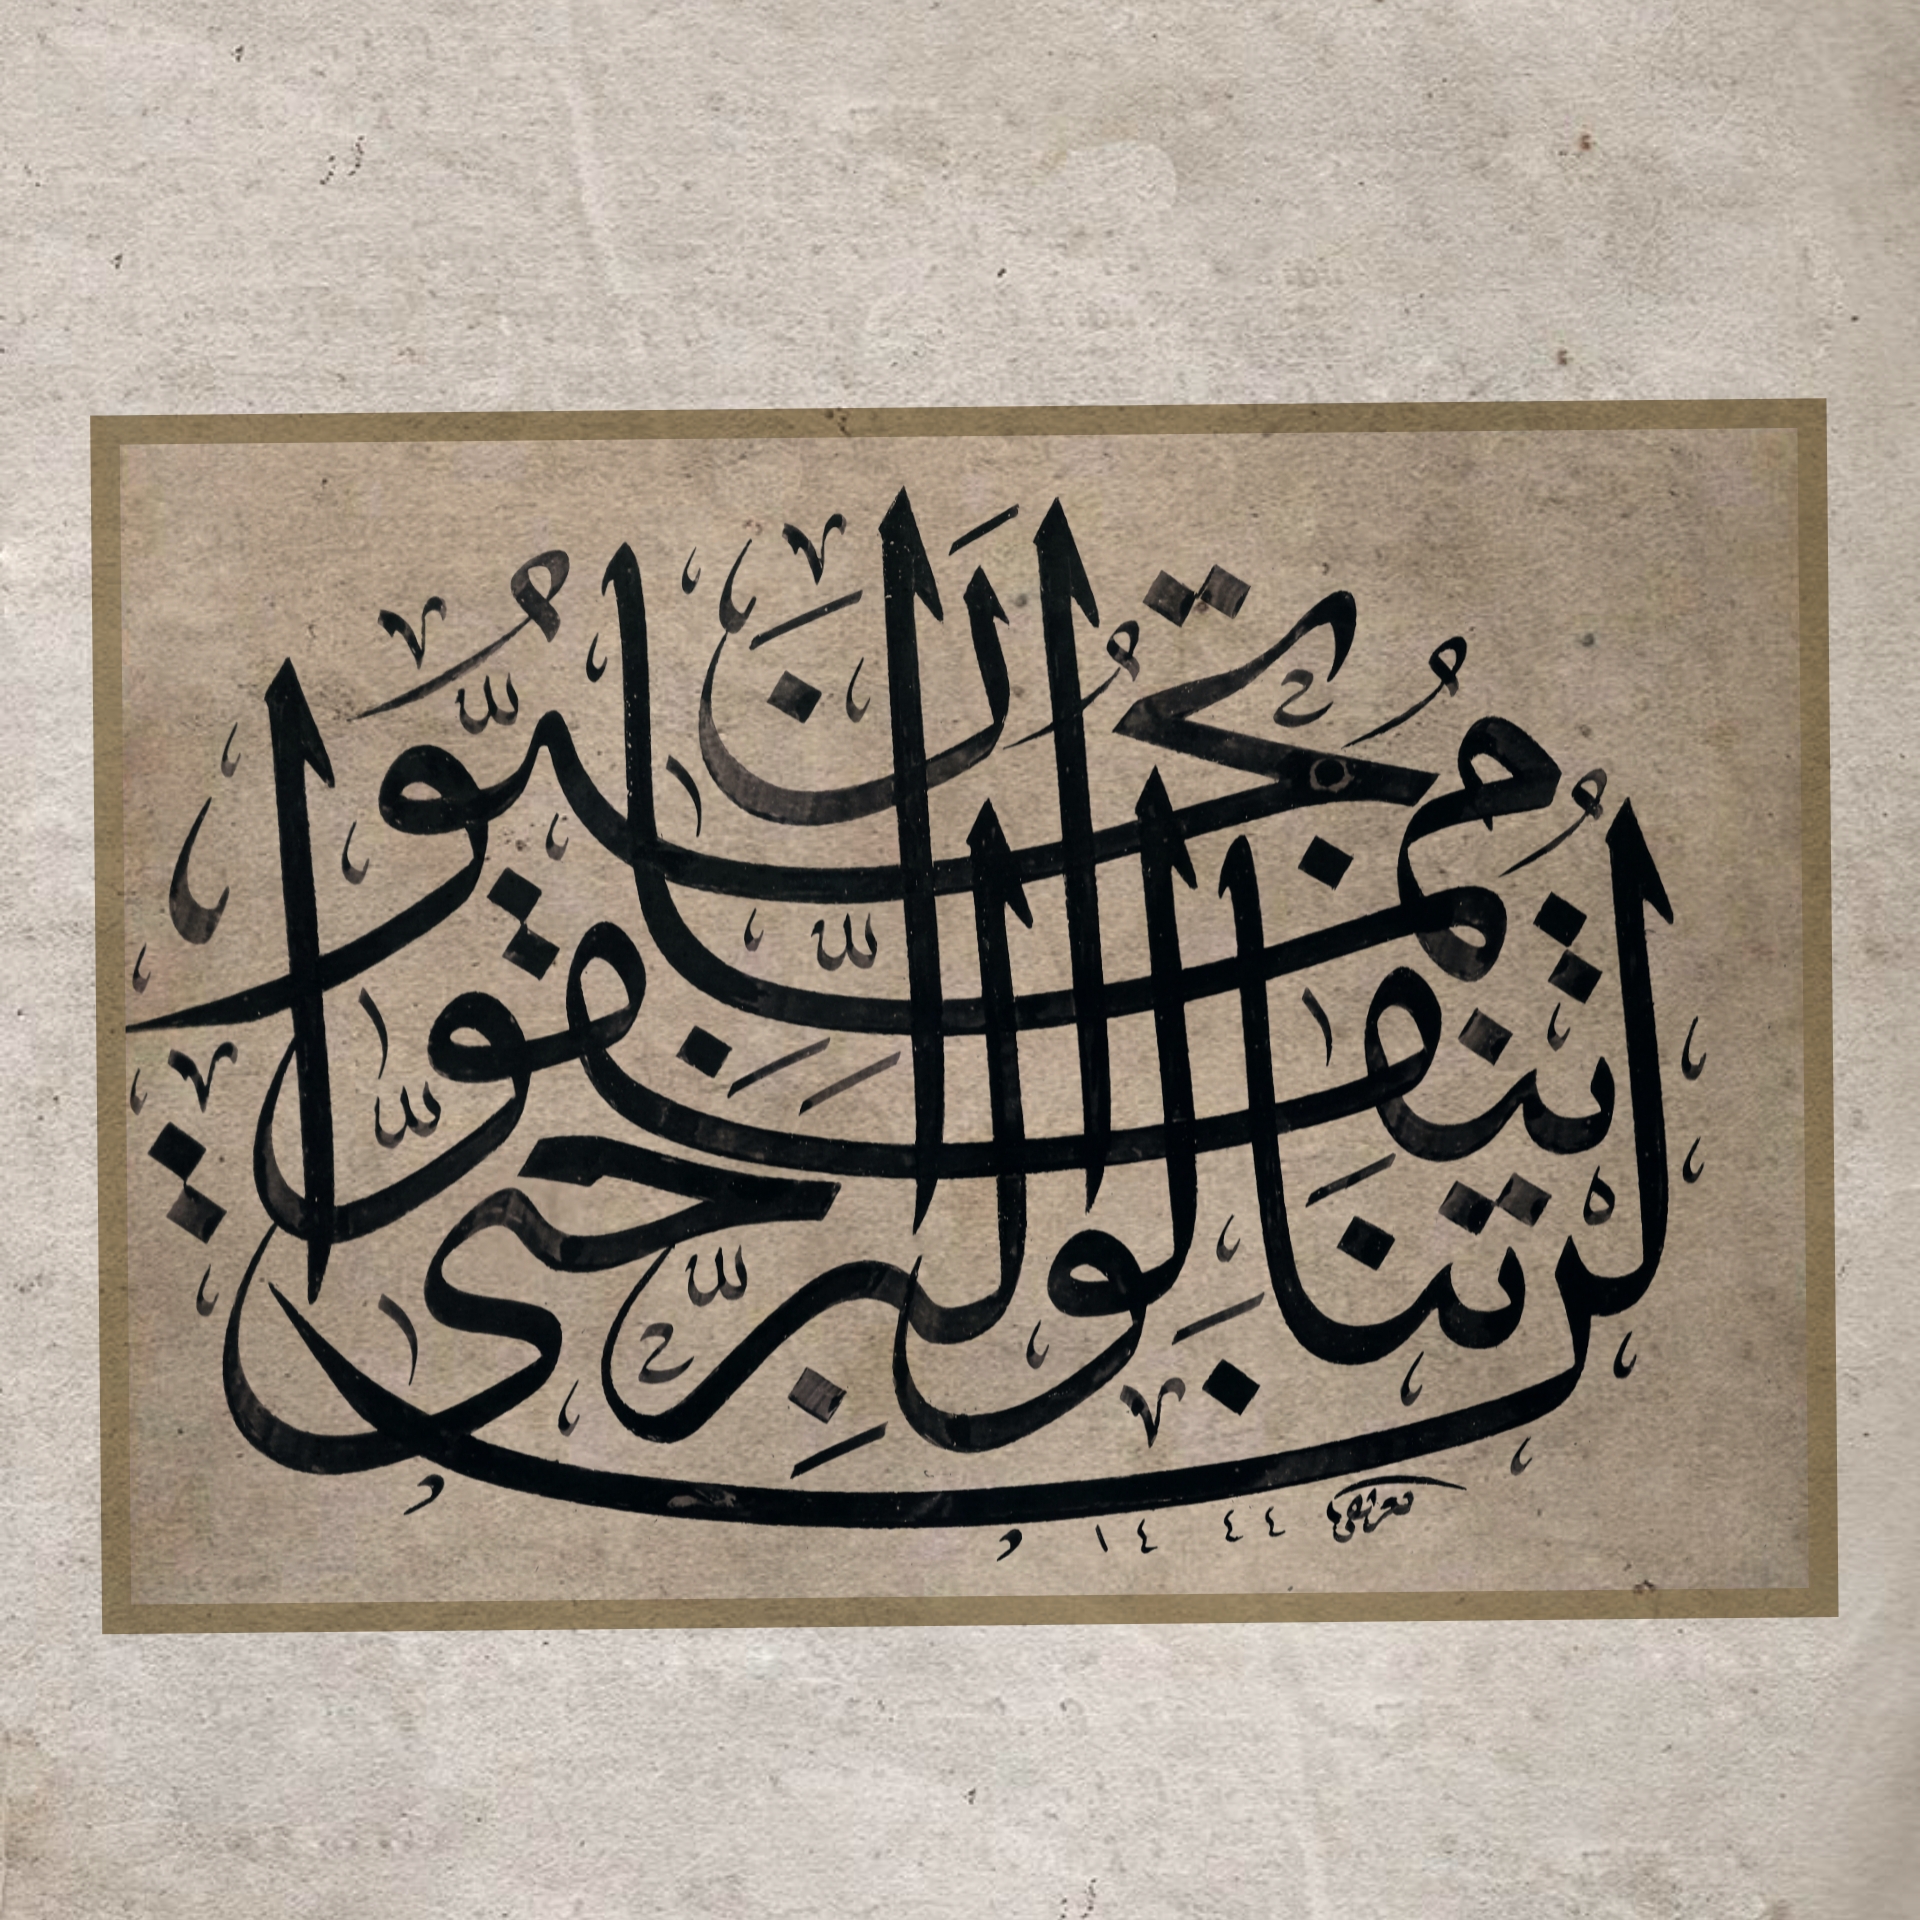 لَنْ تَنَالُوا الْبِرَّ حَتَّى تُنْفِقُوا مِمَّا تُحِبُّونَ
١٤٤٤